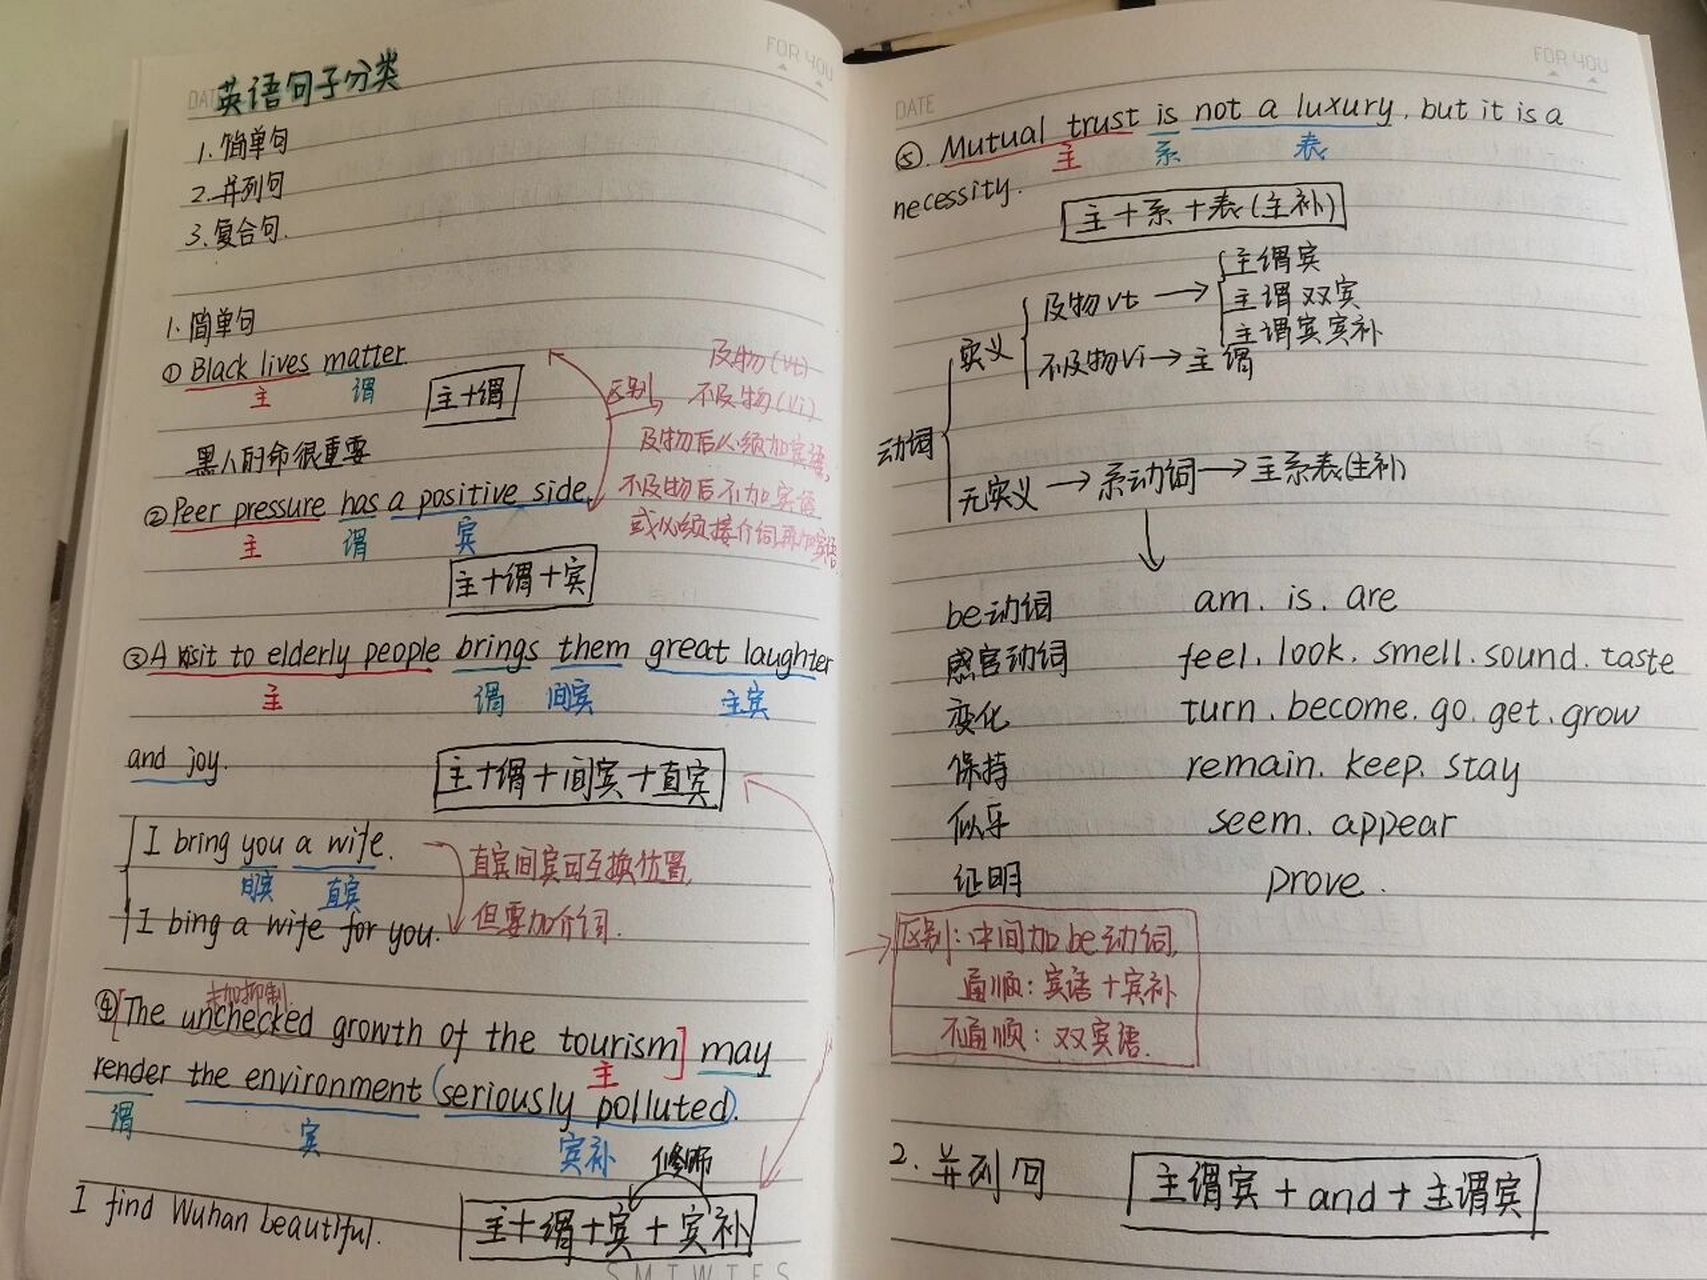 FOR YOU
DATE
英语句子分类
1.简单句
2.并列句
3.复合句.
1.简单句
① Black lives matter
主 谓
主+谓
黑人的命很重要
区别
及物(vt)
不及物(vi)
及物后必须加宾语,
不及物后不加宾语
或必须接介词再加宾语
② Peer pressure has a positive side.
主 谓 宾
主+谓+宾
③ A visit to elderly people brings them great laughter
主 谓 间宾 主宾
and joy.
主+谓+间宾+直宾
I bring you a wife.
间宾 直宾
I bing a wife for you.
直宾间宾可互换位置,
但要加介词.
未加抑制
④[The unchecked growth of the tourism] may
主
render the environment (seriously polluted).
谓 宾 宾补
修饰
I find Wuhan beautiful.
主+谓+宾+宾补
S M T W T F S
FOR YOU
DATE
⑤. Mutual trust is not a luxury, but it is a
主 系 表
necessity.
主+系+表(主补)
动词
实义
及物vt → 主谓宾
主谓双宾
主谓宾宾补
不及物vi → 主谓
无实义 → 系动词 → 主系表(主补)
be动词 am. is. are
感官动词 feel. look. smell. sound. taste
变化 turn. become. go. get. grow
保持 remain. keep. stay
似乎 seem. appear
证明 prove.
区别:中间加be动词,
通顺:宾语+宾补
不通顺:双宾语.
2. 并列句
主谓宾+and+主谓宾